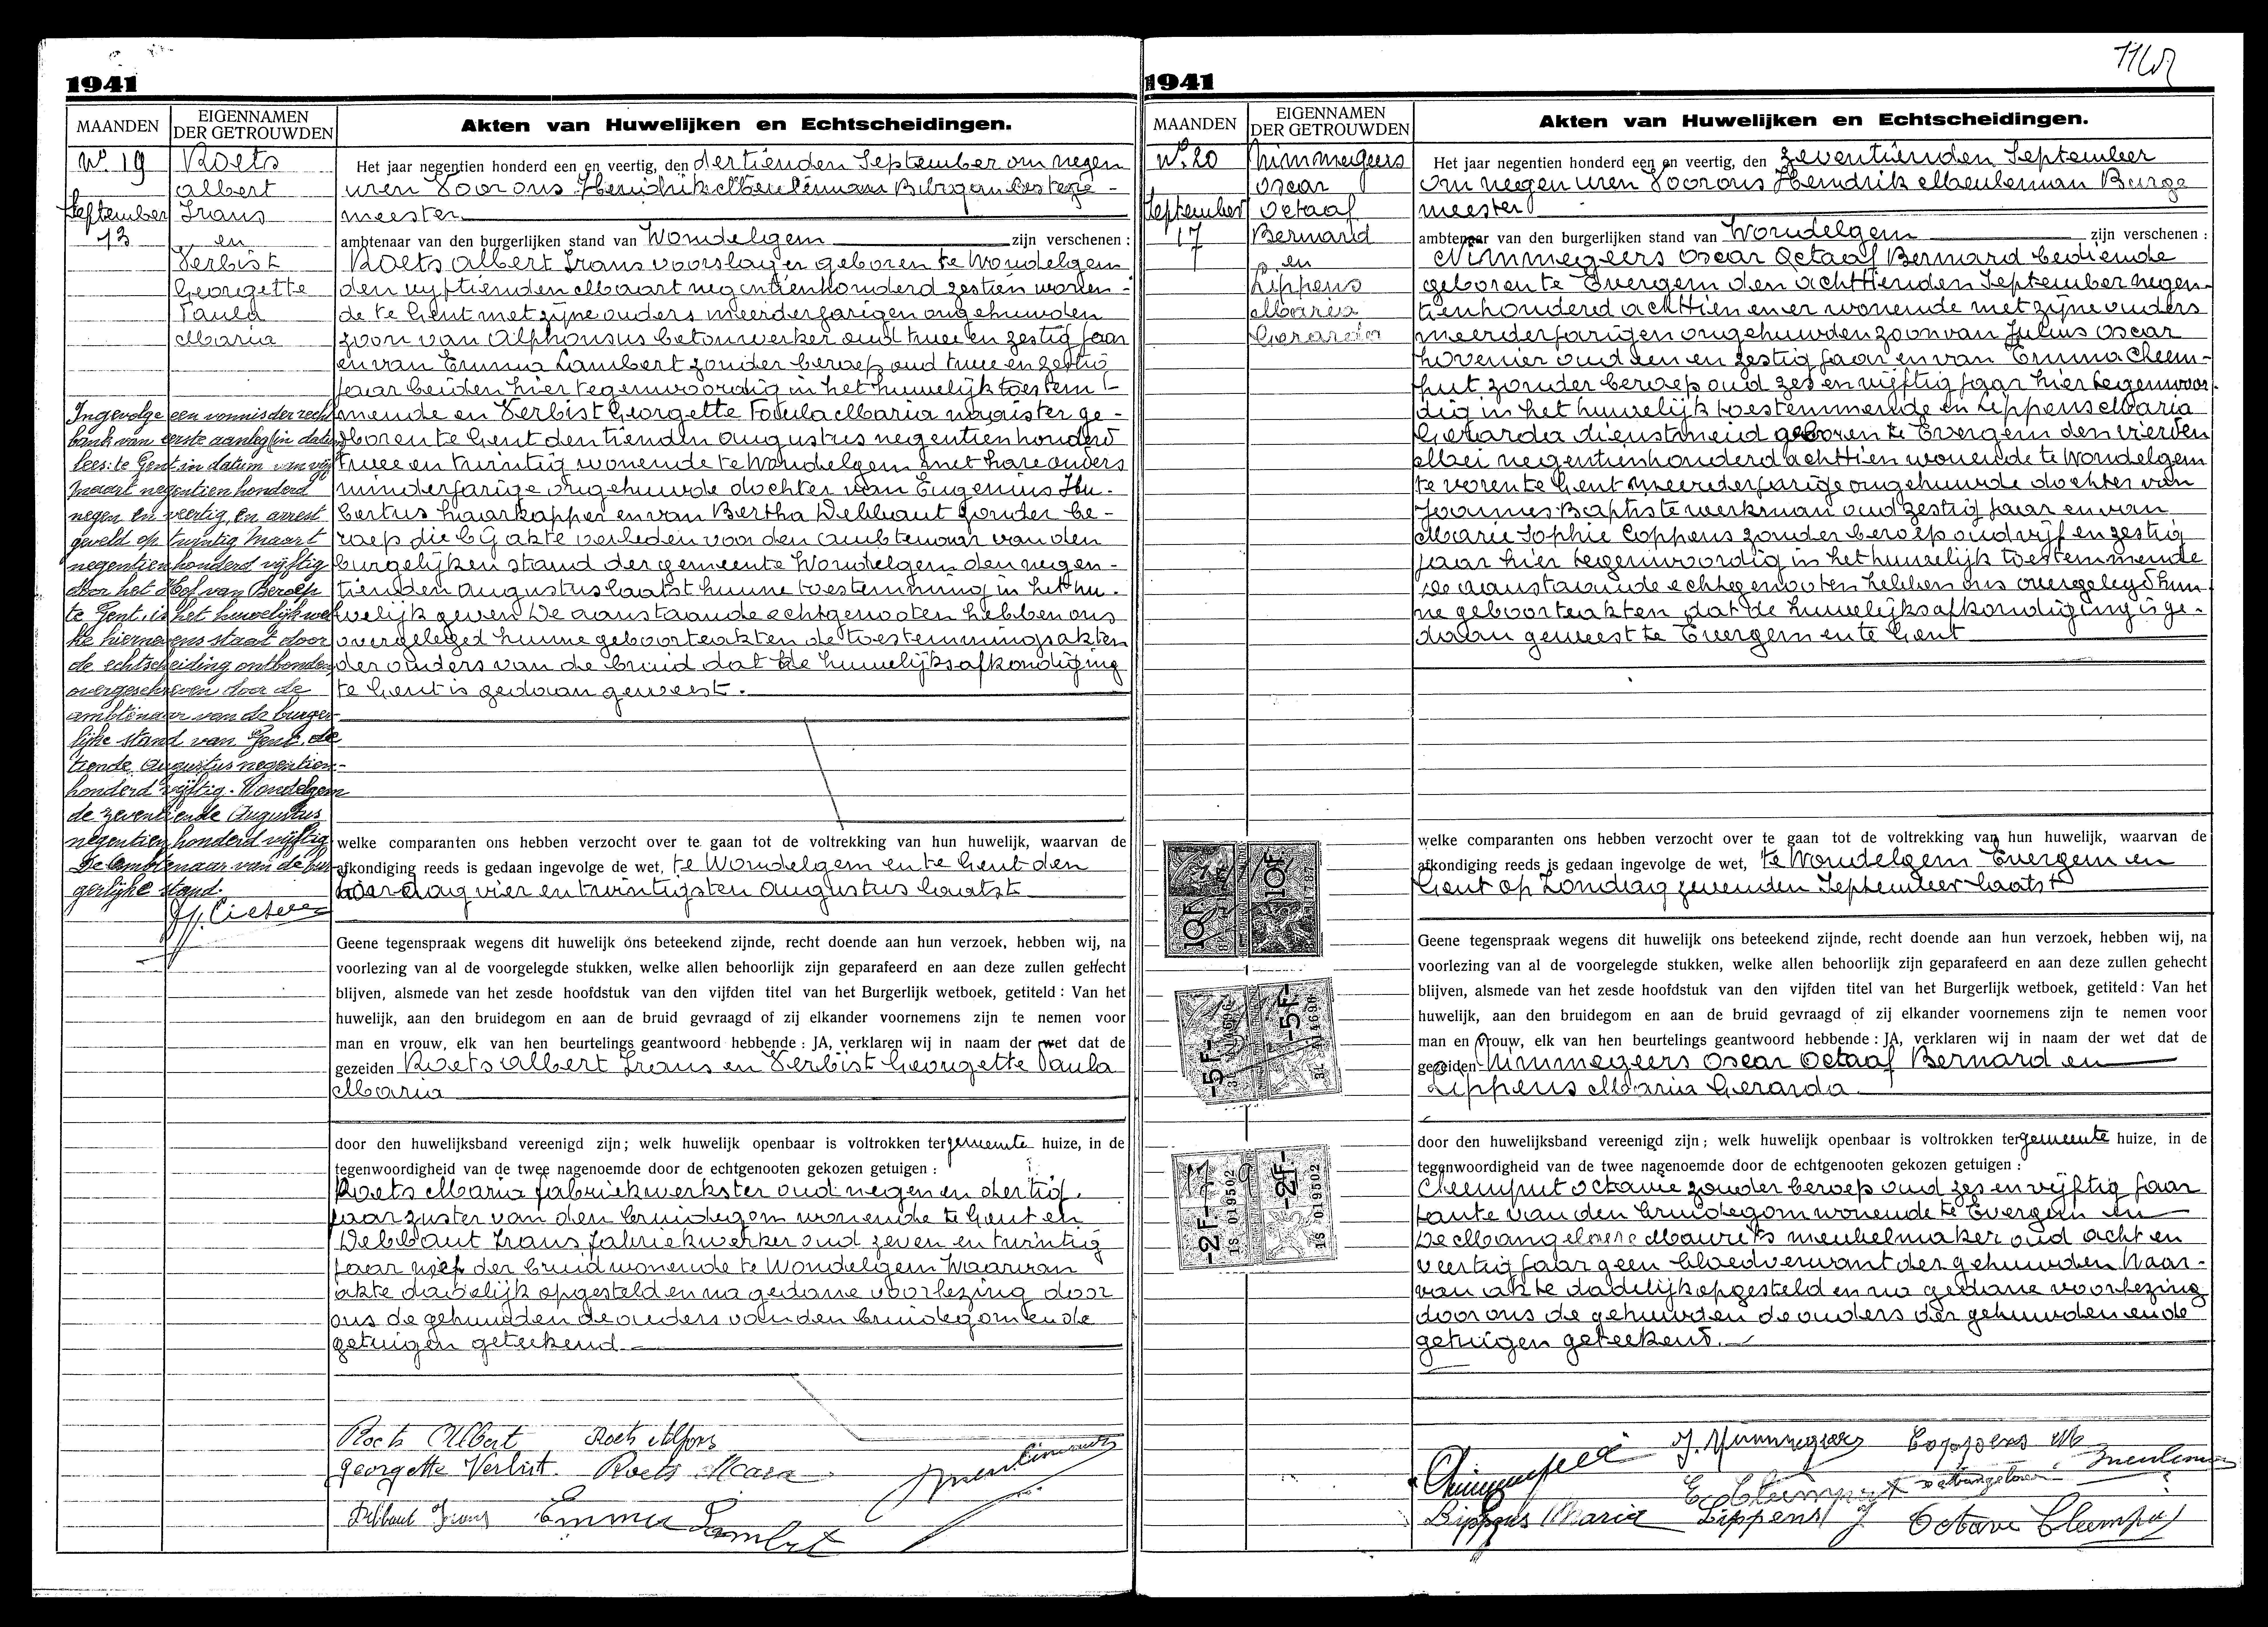 1941
MAANDEN
EIGENNAMEN
DER GETROUWDEN
Akten van Huwelijken en Echtscheidingen.
No. 19
September
13
Roets
Albert
Frans
en
Verbist
Georgette
Paula
Maria
Ingevolge een vonnis der recht
bank van eerste aanleg in datum
lees: te Gent in datum van vijf
maart negentien honderd
negen en veertig, en arrest
geveld op twintig Maart
negentien honderd vijftig
door het Hof van Beroep
te Gent, is het huwelijk wel
ke hiernevens staat door
de echtscheiding ontbonden
overgeschreven door de
ambtenaar van de burger-
lijke stand van Gent, de
tiende Augustus negentien-
honderd vijftig. Wondelgem
de zeventiende Augustus
negentien honderd vijftig
De ambtenaar van de bur-
gerlijke stand:
Het jaar negentien honderd een en veertig, den dertienden September om negen
uren Voor ons Hendrik Meuleman Burgemeester
meester
ambtenaar van den burgerlijken stand van Wondelgem zijn verschenen :
Roets Albert Frans voorslager geboren te Wondelgem
den vijftienden Maart negentienhonderd zestien wonen-
de te Gent met zijne ouders meerderjarigen ongehuwden
zoon van Alphonsus betonwerker oud twee en zestig jaar
en van Emma Lambert zonder beroep oud twee en zestig
jaar beiden hier tegenwoordig in het huwelijk toestem-
mende en Verbist Georgette Paula Maria naaister ge-
boren te Gent den tienden Augustus negentienhonderd
twee en twintig wonende te Wondelgem met hare ouders
minderjarige ongehuwde dochter van Eugenius Hu-
bertus haarkapper en van Bertha Debbaut zonder be-
roep die bij akte verleden voor den ambtenaar van den
burgelijken stand der gemeente Wondelgem den negen-
tienden Augustus laatst hunne toestemming in het hu-
welijk geven De aanstaande echtgenooten hebben ons
overgelegd hunne geboorteakten de toestemmingsakten
der ouders van de bruid dat de huwelijksafkondiging
te Gent is gedaan geweest.
welke comparanten ons hebben verzocht over te gaan tot de voltrekking van hun huwelijk, waarvan de
afkondiging reeds is gedaan ingevolge de wet, te Wondelgem en te Gent den
vier en twintigsten Augustus laatst
Geene tegenspraak wegens dit huwelijk ons beteekend zijnde, recht doende aan hun verzoek, hebben wij, na
voorlezing van al de voorgelegde stukken, welke allen behoorlijk zijn geparafeerd en aan deze zullen gehecht
blijven, alsmede van het zesde hoofdstuk van den vijfden titel van het Burgerlijk wetboek, getiteld : Van het
huwelijk, aan den bruidegom en aan de bruid gevraagd of zij elkander voornemens zijn te nemen voor
man en vrouw, elk van hen beurtelings geantwoord hebbende : JA, verklaren wij in naam der wet dat de
gezeiden Roets Albert Frans en Verbist Georgette Paula
Maria
door den huwelijksband vereenigd zijn ; welk huwelijk openbaar is voltrokken ter gemeente huize, in de
tegenwoordigheid van de twee nagenoemde door de echtgenooten gekozen getuigen :
Roets Maria fabriekwerkster oud negen en dertig
jaar zuster van den bruidegom wonende te Gent en
Debbaut Frans fabriekwerker oud zeven en twintig
jaar der bruid wonende te Wondelgem Waarvan
akte dadelijk opgesteld en na gedane voorlezing door
ons de gehuwden de ouders van den bruidegom en de
getuigen geteekend
Roets Albert Roets Alfons
Georgette Verbist. Roets Maria
Debbaut Frans Emma Lambert
1941
MAANDEN
EIGENNAMEN
DER GETROUWDEN
Akten van Huwelijken en Echtscheidingen.
No. 20
September
17
Nimmegeers
Oscar
Octaaf
Bernard
en
Lippens
Maria
Gerarda
10F
10F
-5F-
-5F-
-2F-
-2F-
1S 019502
1S 019502
Het jaar negentien honderd een en veertig, den zeventienden September
om negen uren Voor ons Hendrik Meuleman Burge
meester
ambtenaar van den burgerlijken stand van Wondelgem zijn verschenen :
Nimmegeers Oscar Octaaf Bernard bediende
geboren te Evergem den achttienden September negen-
tienhonderd achttien en er wonende met zijne ouders
meerderjarigen ongehuwden zoon van Julius Oscar
hovenier oud een en zestig jaar en van Emma Cleem-
put zonder beroep oud zes en vijftig jaar hier tegenwoor-
dig in het huwelijk toestemmende en Lippens Maria
Gerarda dienstmeid geboren te Evergem den vierden
Mei negentienhonderd achttien wonende te Wondelgem
te voren te Gent meerderjarige ongehuwde dochter van
Joannes-Baptiste werkman oud zestig jaar en van
Marie Sophie Coppens zonder beroep oud vijf en zestig
jaar hier tegenwoordig in het huwelijk toestemmende
De aanstaande echtgenooten hebben ons overgelegd hun-
ne geboorteakten dat de huwelijksafkondiging is ge-
daan geweest te Evergem en te Gent
welke comparanten ons hebben verzocht over te gaan tot de voltrekking van hun huwelijk, waarvan de
afkondiging reeds is gedaan ingevolge de wet, te Wondelgem Evergem en
Gent op Zondag zevenden September laatst
Geene tegenspraak wegens dit huwelijk ons beteekend zijnde, recht doende aan hun verzoek, hebben wij, na
voorlezing van al de voorgelegde stukken, welke allen behoorlijk zijn geparafeerd en aan deze zullen gehecht
blijven, alsmede van het zesde hoofdstuk van den vijfden titel van het Burgerlijk wetboek, getiteld : Van het
huwelijk, aan den bruidegom en aan de bruid gevraagd of zij elkander voornemens zijn te nemen voor
man en vrouw, elk van hen beurtelings geantwoord hebbende : JA, verklaren wij in naam der wet dat de
gezeiden Nimmegeers Oscar Octaaf Bernard en
Lippens Maria Gerarda
door den huwelijksband vereenigd zijn ; welk huwelijk openbaar is voltrokken ter gemeente huize, in de
tegenwoordigheid van de twee nagenoemde door de echtgenooten gekozen getuigen :
Cleemput Octavie zonder beroep oud zes en vijftig jaar
tante van den bruidegom wonende te Evergem en
De Mangeleere Maurits meubelmaker oud acht en
veertig jaar geen bloedverwant der gehuwden Waar-
van akte dadelijk opgesteld en na gedane voorlezing
door ons de gehuwden de ouders der gehuwden en de
getuigen geteekend.
J. Nimmegeers Coppens M
E Cleemput
Lippens Maria Lippens J Octavie Cleemput